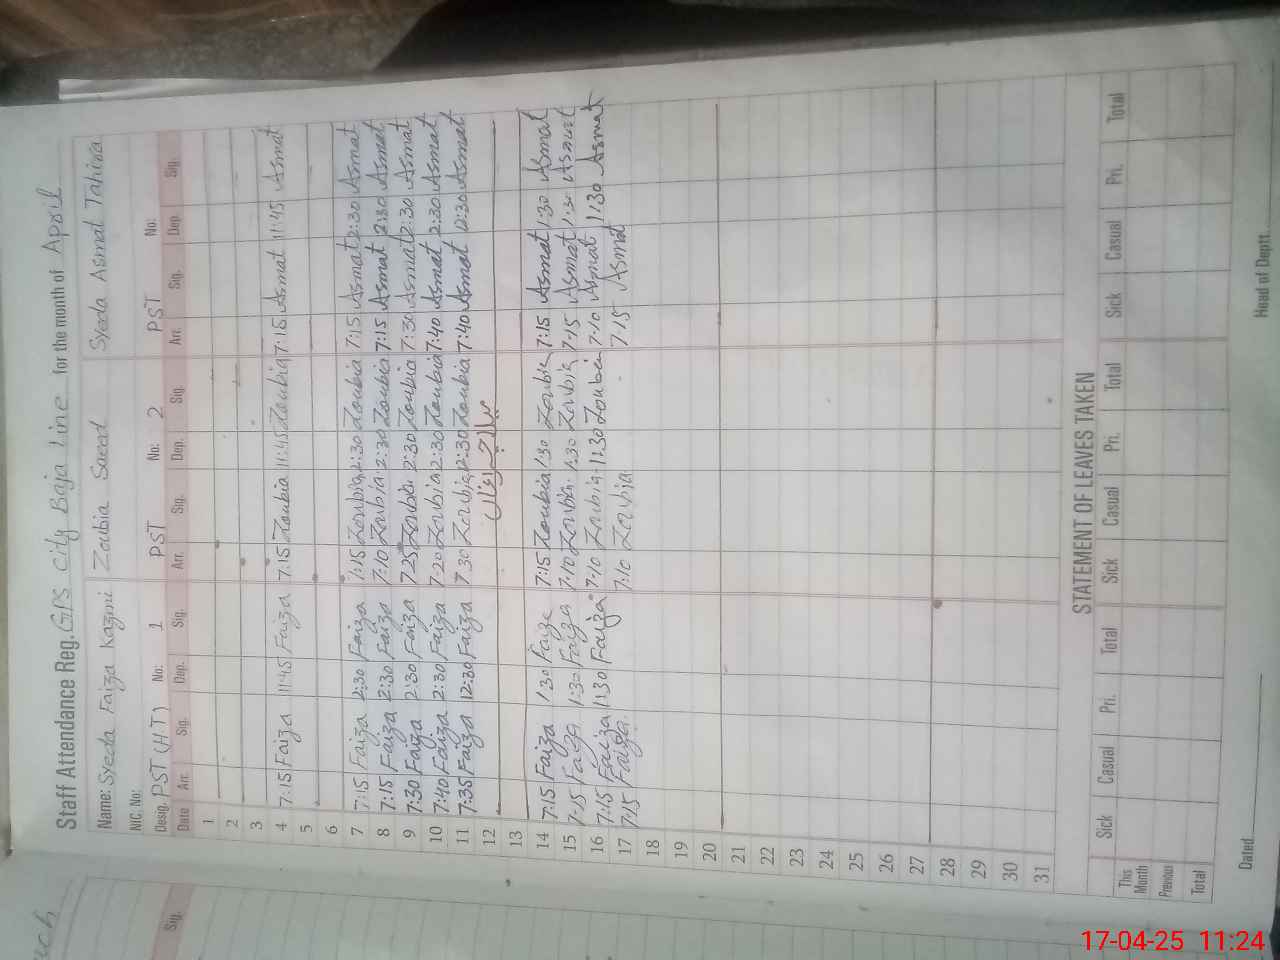 Staff Attendance Reg. GPS City Baja Line for the month of April
Name: Syeda Faiza Kazmi Zoubia Saeed Syeda Asmat Tahira
NIC. No:
Desig. PST (H.T) No: 1 PST No: 2 PST No:
Date Arr. Sig. Dep. Sig. Arr. Sig. Dep. Sig. Arr. Sig. Dep. Sig.
1
2
3
4 7:15 Faiza 11:45 Faiza 7:15 Zoubia 11:45 Zoubia 7:15 Asmat 11:45 Asmat
5
6
7 7:15 Faiza 2:30 Faiza 7:15 Zoubia 2:30 Zoubia 7:15 Asmat 2:30 Asmat
8 7:15 Faiza 2:30 Faiza 7:10 Zoubia 2:30 Zoubia 7:15 Asmat 2:30 Asmat
9 7:30 Faiza 2:30 Faiza 7:25 Zoubia 2:30 Zoubia 7:30 Asmat 2:30 Asmat
10 7:40 Faiza 2:30 Faiza 7:20 Zoubia 2:30 Zoubia 7:40 Asmat 2:30 Asmat
11 7:35 Faiza 12:30 Faiza 7:30 Zoubia 12:30 Zoubia 7:40 Asmat 12:30 Asmat
12
13
14 7:15 Faiza 1:30 Faiza 7:15 Zoubia 1:30 Zoubia 7:15 Asmat 1:30 Asmat
15 7:15 Faiza 1:30 Faiza 7:10 Zoubia 1:30 Zoubia 7:15 Asmat 1:30 Asmat
16 7:15 Faiza 11:30 Faiza 7:10 Zoubia 11:30 Zoubia 7:10 Asmat 11:30 Asmat
17 7:15 Faiza 7:10 Zoubia 7:15 Asmat
18
19
20
21
22
23
24
25
26
27
28
29
30
31
STATEMENT OF LEAVES TAKEN
Sick Casual Pri. Total Sick Casual Pri. Total Sick Casual Pri. Total
This Month
Previous
Total
Dated Head of Deptt.
Sig.
17-04-25 11:24